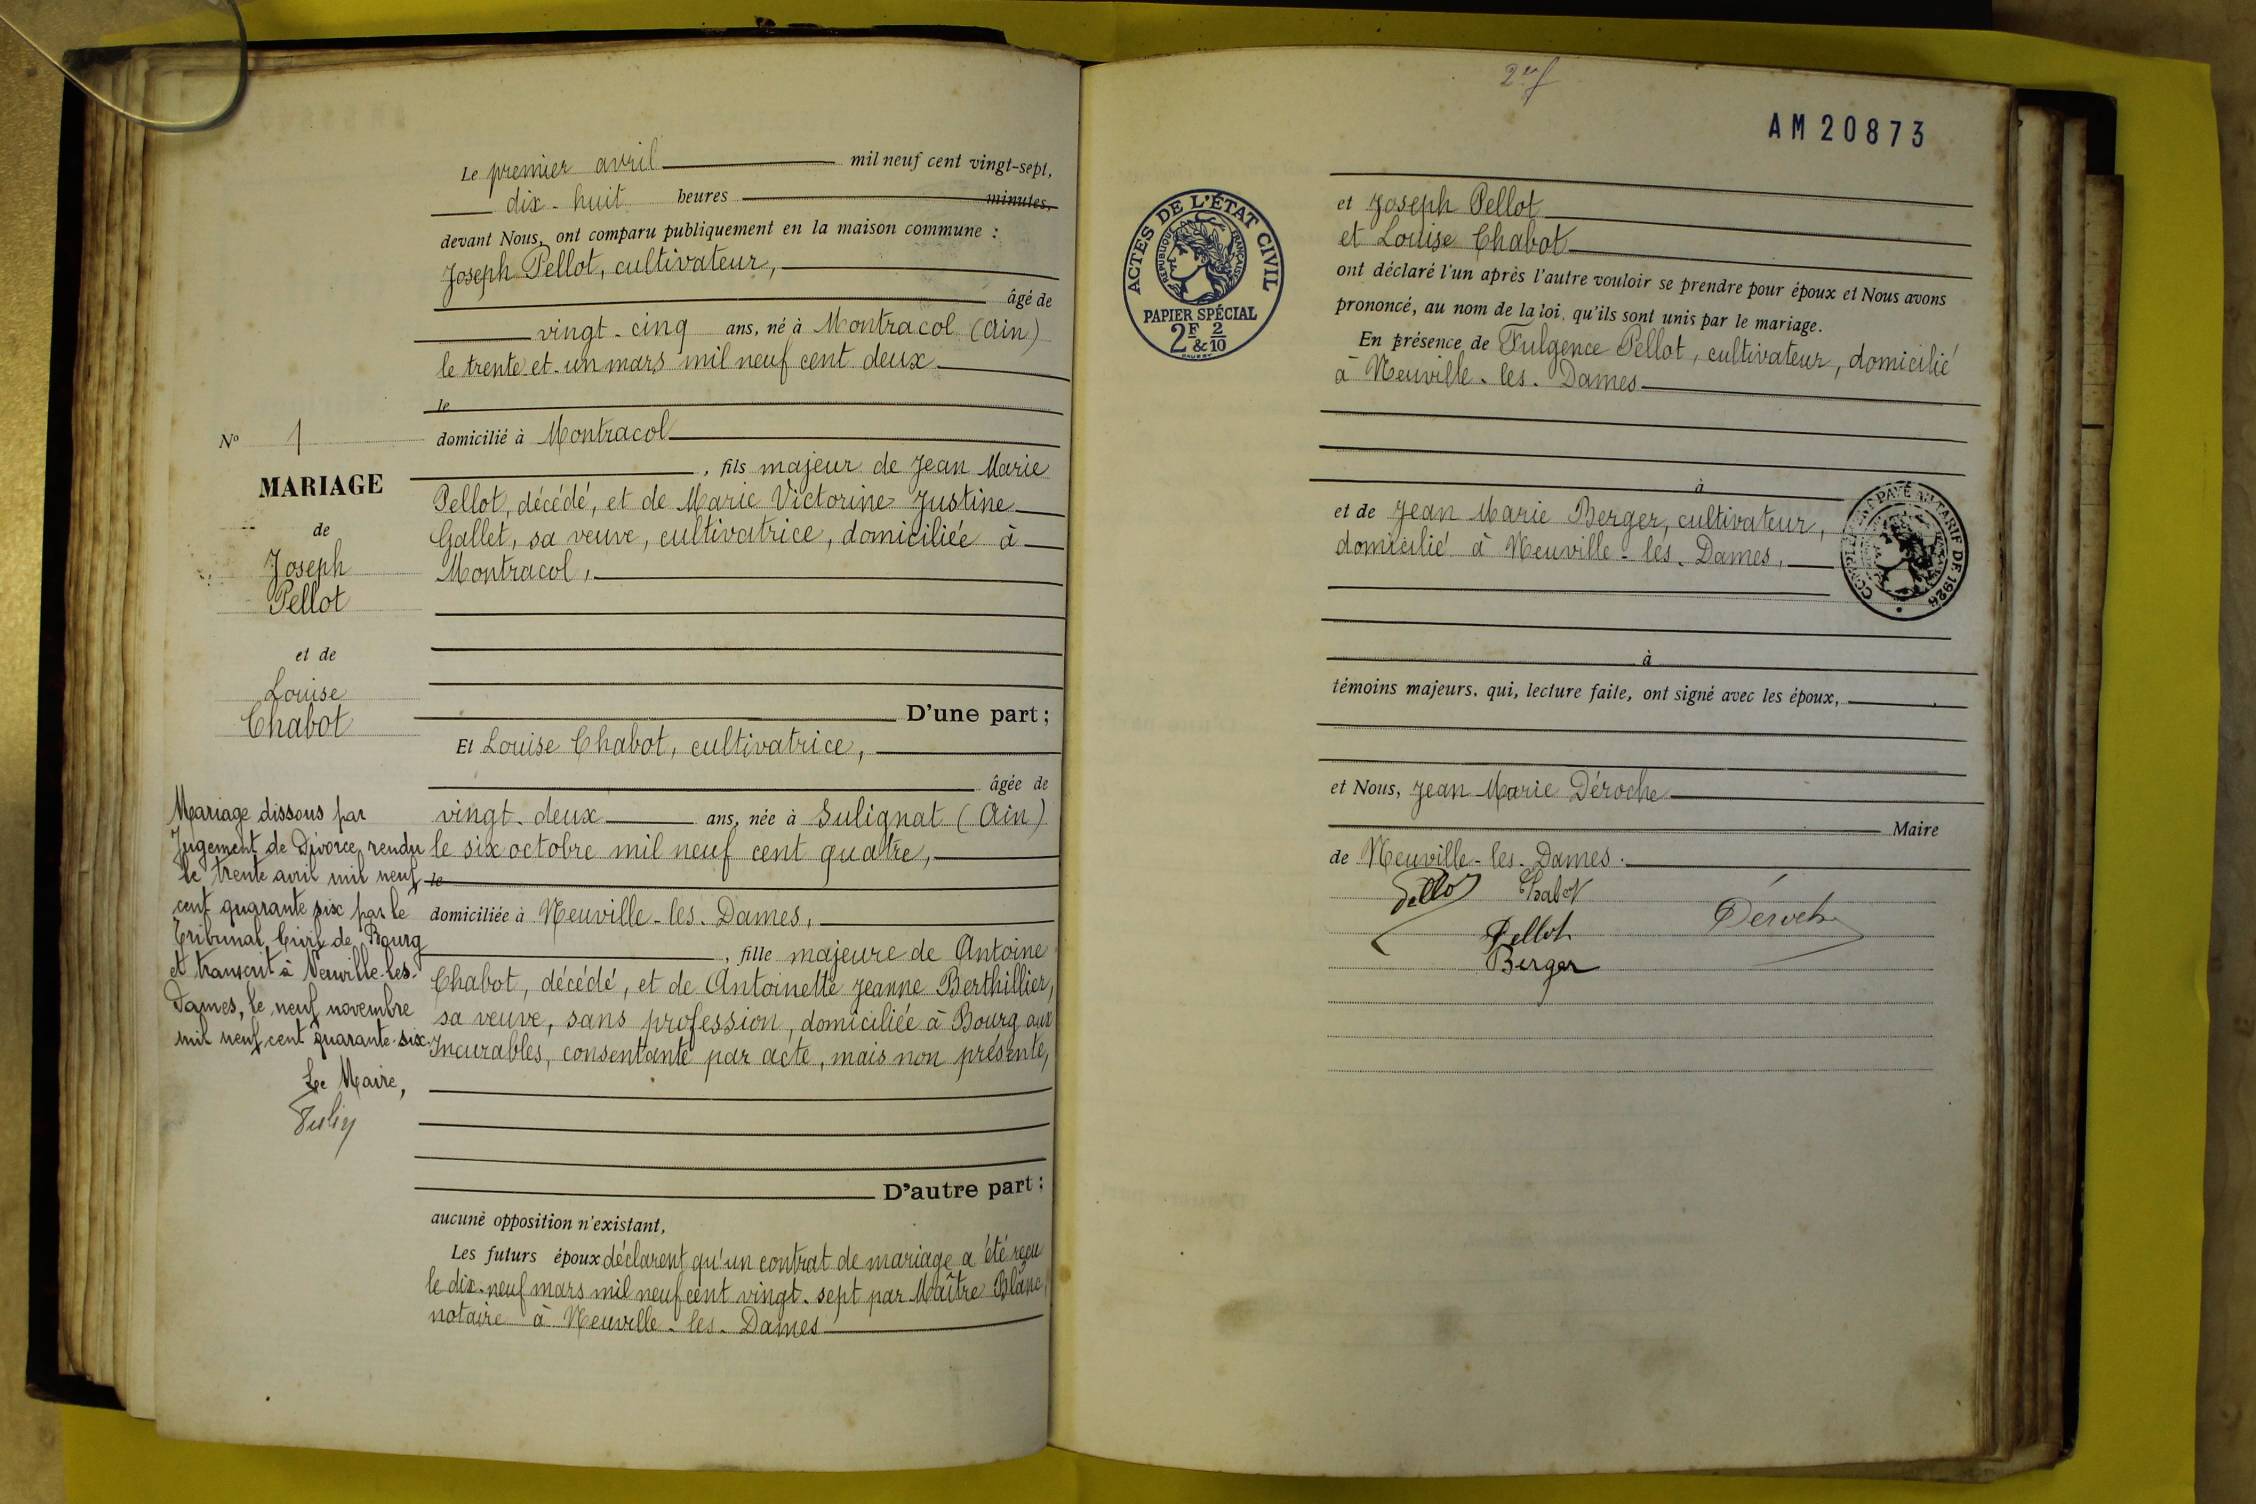 Le premier avril mil neuf cent vingt-sept,
dix-huit heures minutes,
devant Nous, ont comparu publiquement en la maison commune :
Joseph Pellot, cultivateur,
âgé de
vingt-cinq ans, né à Montracol (Ain)
le trente-et-un mars mil neuf cent deux
le
domicilié à Montracol
, fils majeur de Jean Marie
Pellot, décédé, et de Marie Victorine Justine
Gallet, sa veuve, cultivatrice, domiciliée à
Montracol,
D'une part ;
Et Louise Chabot, cultivatrice,
âgée de
vingt-deux ans, née à Sulignat (Ain)
le six octobre mil neuf cent quatre,
le
domiciliée à Neuville-les-Dames,
, fille majeure de Antoine
Chabot, décédé, et de Antoinette Jeanne Berthillier,
sa veuve, sans profession, domiciliée à Bourg aux
Incurables, consentante par acte, mais non présente,
D'autre part ;
aucune opposition n'existant,
Les futurs époux déclarent qu'un contrat de mariage a été reçu
le dix-neuf mars mil neuf cent vingt-sept par Maître Blanc,
notaire à Neuville-les-Dames
N° 1
MARIAGE
de
Joseph
Pellot
et de
Louise
Chabot
Mariage dissous par
Jugement de Divorce rendu
le trente avril mil neuf
cent quarante six par le
Tribunal Civil de Bourg
et transcrit à Neuville-les-
Dames, le neuf novembre
mil neuf cent quarante-six.
Le Maire,
AM20873
ACTES DE L'ÉTAT CIVIL
RÉPUBLIQUE FRANÇAISE
PAPIER SPÉCIAL
2F & 2/10
et Joseph Pellot
et Louise Chabot
ont déclaré l'un après l'autre vouloir se prendre pour époux et Nous avons
prononcé, au nom de la loi, qu'ils sont unis par le mariage.
En présence de Fulgence Pellot, cultivateur, domicilié
à Neuville-les-Dames
à
et de Jean Marie Berger, cultivateur,
domicilié à Neuville-les-Dames,
TARIF DE 1926
à
témoins majeurs, qui, lecture faite, ont signé avec les époux,
et Nous, Jean Marie Déroche
Maire
de Neuville-les-Dames.
Pellot Chabot
Pellot Déroche
Berger